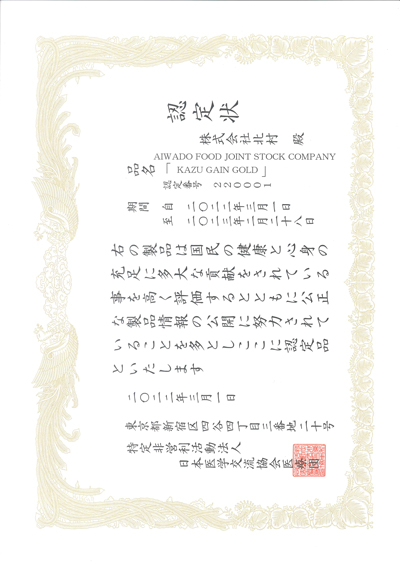 認定状
株式会社北村　殿
AIWADO FOOD JOINT STOCK COMPANY
品名「 KAZU GAIN GOLD 」
認定番号　２２０００１
期間　自　二〇二二年三月一日
至　二〇二三年二月二十八日
右の製品は国民の健康と心身の
充足に多大な貢献をされている
事を高く評価するとともに公正
な製品情報の公開に努力されて
いることを多としここに認定品
といたします
二〇二二年三月一日
東京都新宿区四谷四丁目三番地二十号
特定非営利活動法人
日本医学交流協会医療団